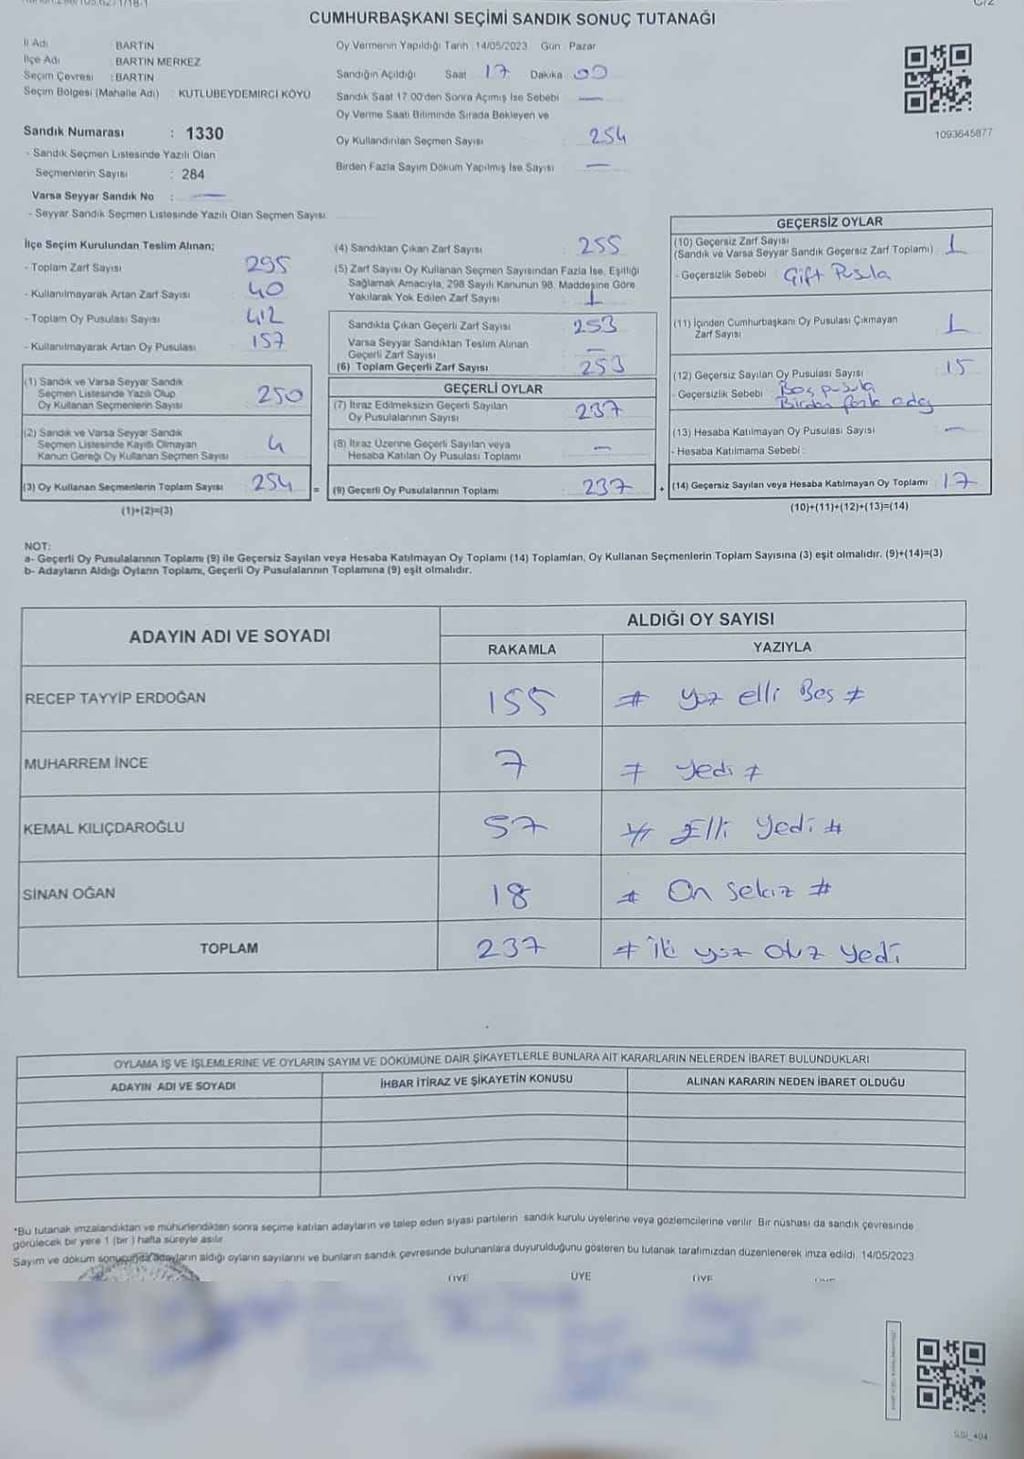 CUMHURBAŞKANI SEÇİMİ SANDIK SONUÇ TUTANAĞI
İl Adı : BARTIN
İlçe Adı : BARTIN MERKEZ
Seçim Çevresi : BARTIN
Seçim Bölgesi (Mahalle Adı) : KUTLUBEYDEMİRCİ KÖYÜ
Sandık Numarası : 1330
- Sandık Seçmen Listesinde Yazılı Olan
Seçmenlerin Sayısı : 284
Varsa Seyyar Sandık No : —
- Seyyar Sandık Seçmen Listesinde Yazılı Olan Seçmen Sayısı
Oy Vermenin Yapıldığı Tarih : 14/05/2023 Gün : Pazar
Sandığın Açıldığı Saat 17 Dakika 00
Sandık Saat 17.00'den Sonra Açılmış İse Sebebi —
Oy Verme Saati Bitiminde Sırada Bekleyen ve
Oy Kullandırılan Seçmen Sayısı : 254
Birden Fazla Sayım Döküm Yapılmış İse Sayısı —
1093645877
İlçe Seçim Kurulundan Teslim Alınan;
- Toplam Zarf Sayısı : 295
- Kullanılmayarak Artan Zarf Sayısı : 40
- Toplam Oy Pusulası Sayısı : 412
- Kullanılmayarak Artan Oy Pusulası : 157
(1) Sandık ve Varsa Seyyar Sandık
Seçmen Listesinde Yazılı Olup
Oy Kullanan Seçmenlerin Sayısı : 250
(2) Sandık ve Varsa Seyyar Sandık
Seçmen Listesinde Kayıtlı Olmayan
Kanun Gereği Oy Kullanan Seçmen Sayısı : 4
(3) Oy Kullanan Seçmenlerin Toplam Sayısı : 254 =
(1)+(2)=(3)
(4) Sandıktan Çıkan Zarf Sayısı : 255
(5) Zarf Sayısı Oy Kullanan Seçmen Sayısından Fazla İse, Eşitliği
Sağlamak Amacıyla, 298 Sayılı Kanunun 98. Maddesine Göre
Yakılarak Yok Edilen Zarf Sayısı : 1
Sandıkta Çıkan Geçerli Zarf Sayısı : 253
Varsa Seyyar Sandıktan Teslim Alınan
Geçerli Zarf Sayısı : —
(6) Toplam Geçerli Zarf Sayısı : 253
GEÇERLİ OYLAR
(7) İtiraz Edilmeksizin Geçerli Sayılan
Oy Pusulalarının Sayısı : 237
(8) İtiraz Üzerine Geçerli Sayılan veya
Hesaba Katılan Oy Pusulası Toplamı : —
(9) Geçerli Oy Pusulalarının Toplamı : 237 +
GEÇERSİZ OYLAR
(10) Geçersiz Zarf Sayısı
(Sandık ve Varsa Seyyar Sandık Geçersiz Zarf Toplamı) : 1
- Geçersizlik Sebebi : Çift Pusula
(11) İçinden Cumhurbaşkanı Oy Pusulası Çıkmayan
Zarf Sayısı : 1
(12) Geçersiz Sayılan Oy Pusulası Sayısı : 15
- Geçersizlik Sebebi : Boş pusula
Birden fazla aday
(13) Hesaba Katılmayan Oy Pusulası Sayısı : —
- Hesaba Katılmama Sebebi :
(14) Geçersiz Sayılan veya Hesaba Katılmayan Oy Toplamı : 17
(10)+(11)+(12)+(13)=(14)
NOT:
a- Geçerli Oy Pusulalarının Toplamı (9) ile Geçersiz Sayılan veya Hesaba Katılmayan Oy Toplamı (14) Toplamları, Oy Kullanan Seçmenlerin Toplam Sayısına (3) eşit olmalıdır. (9)+(14)=(3)
b- Adayların Aldığı Oyların Toplamı, Geçerli Oy Pusulalarının Toplamına (9) eşit olmalıdır.
ADAYIN ADI VE SOYADI ALDIĞI OY SAYISI
RAKAMLA YAZIYLA
RECEP TAYYİP ERDOĞAN 155 # yüz elli Beş #
MUHARREM İNCE 7 # yedi #
KEMAL KILIÇDAROĞLU 57 # Elli yedi #
SİNAN OĞAN 18 # On sekiz #
TOPLAM 237 # iki yüz otuz yedi
OYLAMA İŞ VE İŞLEMLERİNE VE OYLARIN SAYIM VE DÖKÜMÜNE DAİR ŞİKAYETLERLE BUNLARA AİT KARARLARIN NELERDEN İBARET BULUNDUKLARI
ADAYIN ADI VE SOYADI İHBAR İTİRAZ VE ŞİKAYETİN KONUSU ALINAN KARARIN NEDEN İBARET OLDUĞU
*Bu tutanak imzalandıktan ve mühürlendikten sonra seçime katılan adayların ve talep eden siyasi partilerin sandık kurulu üyelerine veya gözlemcilerine verilir. Bir nüshası da sandık çevresinde
görülecek bir yere 1 (bir) hafta süreyle asılır.
Sayım ve döküm sonucunda adayların aldığı oyların sayılarını ve bunların sandık çevresinde bulunanlara duyurulduğunu gösteren bu tutanak tarafımızdan düzenlenerek imza edildi. 14/05/2023
ÜYE ÜYE ÜYE